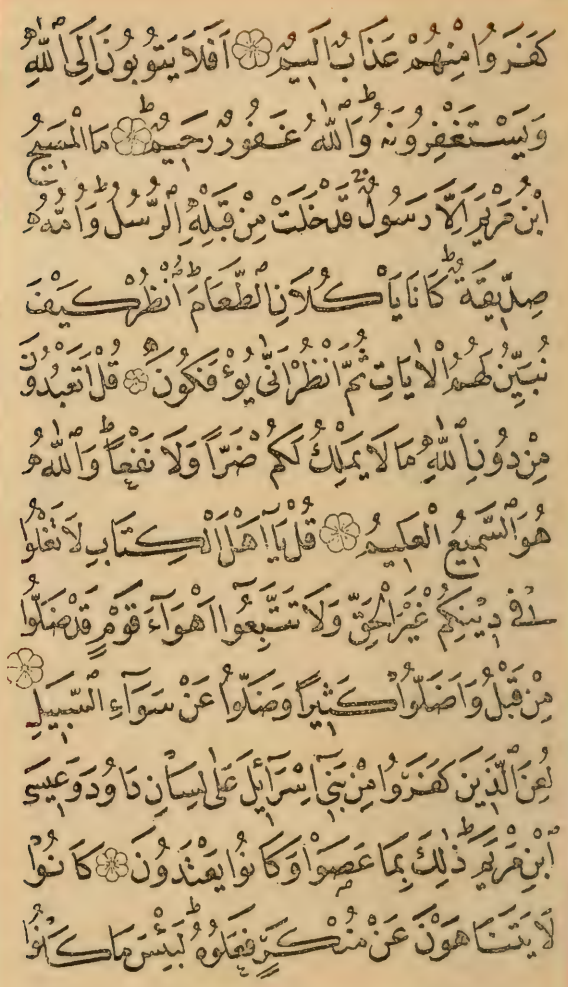 كَفَرُوا مِنْهُمْ عَذَابٌ اَلِيمٌ ۝ اَفَلَا يَتُوبُونَ اِلَى اللّٰهِ
وَيَسْتَغْفِرُونَهُ ط وَاللّٰهُ غَفُورٌ رَحِيمٌ ۝ ط مَا الْمَسِيحُ
ابْنُ مَرْيَمَ اِلَّا رَسُولٌ قَدْ خَلَتْ مِنْ قَبْلِهِ الرُّسُلُ ط وَاُمُّهُ
صِدِّيقَةٌ ط كَانَا يَاْكُلَانِ الطَّعَامَ ط اُنْظُرْ كَيْفَ
نُبَيِّنُ لَهُمُ الْاٰيَاتِ ثُمَّ انْظُرْ اَنّٰى يُؤْفَكُونَ ۝ قُلْ اَتَعْبُدُونَ
مِنْ دُونِ اللّٰهِ مَا لَا يَمْلِكُ لَكُمْ ضَرًّا وَلَا نَفْعًا ط وَاللّٰهُ
هُوَ السَّمِيعُ الْعَلِيمُ ۝ قُلْ يَآ اَهْلَ الْكِتَابِ لَا تَغْلُوا
فِي دِينِكُمْ غَيْرَ الْحَقِّ وَلَا تَتَّبِعُوٓا اَهْوَآءَ قَوْمٍ قَدْ ضَلُّوا
مِنْ قَبْلُ وَاَضَلُّوا كَثِيرًا وَضَلُّوا عَنْ سَوَآءِ السَّبِيلِ ۝
لُعِنَ الَّذِينَ كَفَرُوا مِنْ بَنِيٓ اِسْرَآئِلَ عَلٰى لِسَانِ دَاوُدَ وَعِيسَى
ابْنِ مَرْيَمَ ط ذٰلِكَ بِمَا عَصَوْا وَكَانُوا يَعْتَدُونَ ۝ كَانُوا
لَا يَتَنَاهَوْنَ عَنْ مُنْكَرٍ فَعَلُوهُ ط لَبِئْسَ مَا كَانُوا